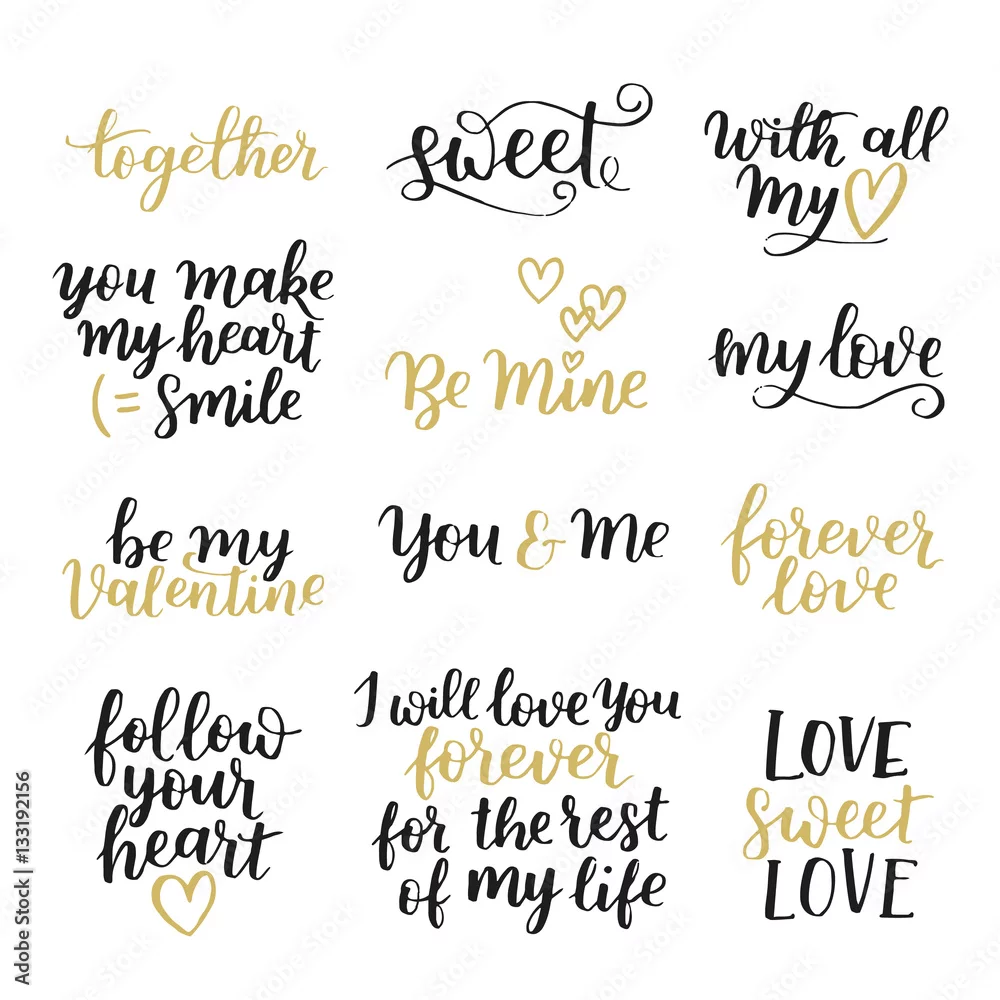 together
sweet
with all
my
you make
my heart
(= Smile
Be Mine
my love
be my
Valentine
You & Me
forever
love
follow
your
heart
I will love you
forever
for the rest
of my life
LOVE
sweet
LOVE
Adobe Stock | #133192156